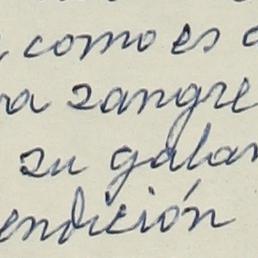 como es
ra zangre
zu galan
endición